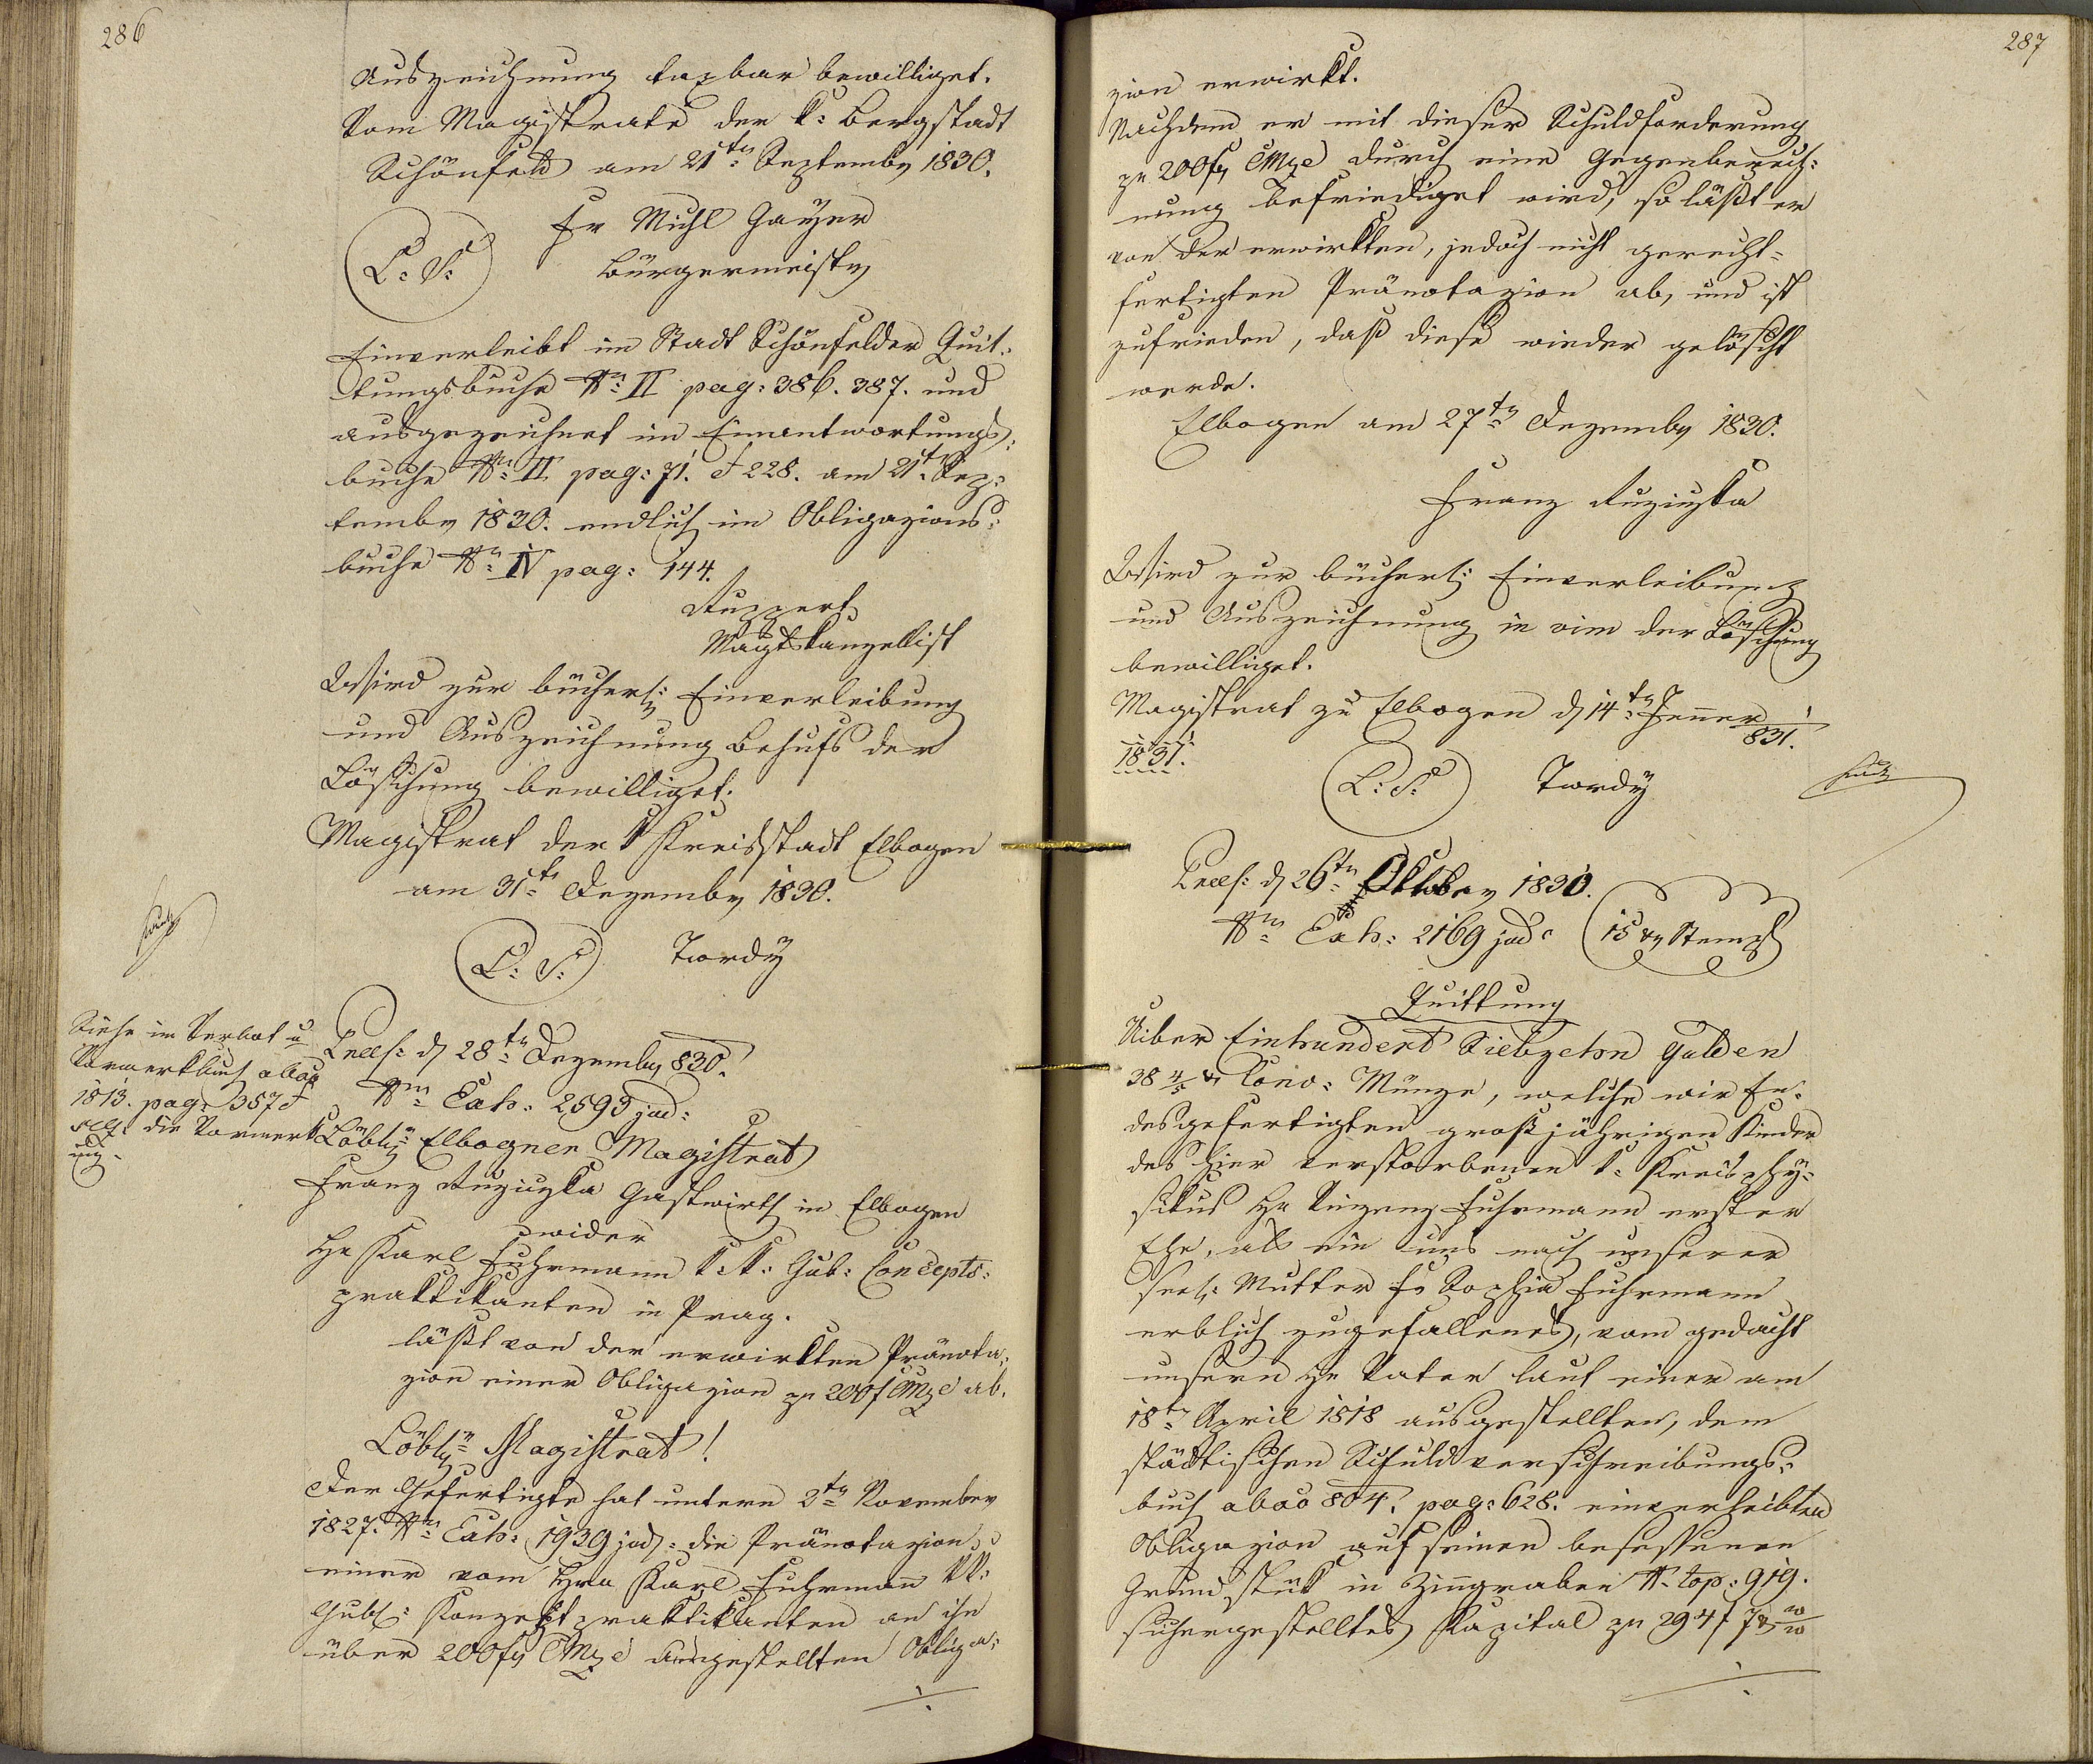 286
Auszeichnung taxbar bewilliget.
Vom Magistrate der k: Bergstadt
Schönfeld am 21tn Septembr 1830.
Fr Michl Gayer
L: S:
Bürgermeistr
Einverleibt im Stadt Schönfelder Quit-
tungsbuche Nro II pag: 386. 387. und
ausgezeichnet im Einantwortungs-
buche Nro II pag: 71. & 228. am 21t Sep-
tembr 1830. endlich im Obligazions-
buche Nro IV pag: 144.
Ruppert
Magtskanzellist
Wird zur bücherl: Einverleibung
und Auszeichnung Behufs der
Löschung bewilliget.
Magistrat der k Kreisstadt Elbogen
am 31tn Dezembr 1830.
L: S:
Tordy
Siehe im Verbot u
Vormerkbuch abao
1813. pag: 357 &
seq: die Vormerk
ung.
Praes: d 28tn Dezembr 830.
Nro Exh: 2593 jud:
Löbln Elbogner Magistrat
Franz Ruziczka Gastwirth in Elbogen
wider
Hr Karl Fuhrmann k: k: Gub: Concepts-
praktikanten in Prag.
läßt von der erwirkten Pränota-
zion einer Obligazion pr 200f CMze ab.
Löbln Magistrat!
Der Gefertigte hat unterm 2tn November
1827. Nro Exh: 1939 jud: die Pränotazion
einer vom Hrn Karl Fuhrmann kk:
Gubl: Konzeptpraktikanten an ihn
über 200fr CMze ausgestellten Obliga-
287
zion erwirkt.
Nachdem er mit dieser Schuldforderung
pr 200fr CMze durch eine Gegenberech-
nung befriediget wird, so läßt er
von der erwirkten, jedoch nicht gerecht-
fertigten Pränotazion ab, und ist
zufrieden, daß diese wieder gelöscht
werde.
Elbogen am 27tn Dezembr 1830.
Franz Ruziczka
Wird zur bücherl: Einverleibung
und Auszeichnung in vim der Löschung
bewilliget.
Magistrat zu Elbogen d 14tn Jenner
831.
1831.
L: S:
Tordy
Praes: d 26tn Oktober 1830.
Nro Exh: 2169 jud:
15 xr Stempl
Quittung
Uiber Einhundert Siebzehn Gulden
38 4/5 xr Conv: Münze, welche wir En-
desgefertigten großjährigen Kinder
des hier verstorbenen k: Kreisphy-
sikus Hr Vinzenz Fuhrmann erster
Ehe, als ein uns nach unserer
seel: Mutter Fr Sophia Fuhrmann
erblich zugefallenes, vom gedacht
unsern Hr Vater laut einer am
18tn April 1818 ausgestellten, dem
städtischen Schuldverschreibungs-
buch abao 804. pag: 628. einverleibten
Obligazion auf seinen besessenen
Grundstük in Zinngraben N. top: 919.
sichergestelltes Kapital pr 294f 7xr